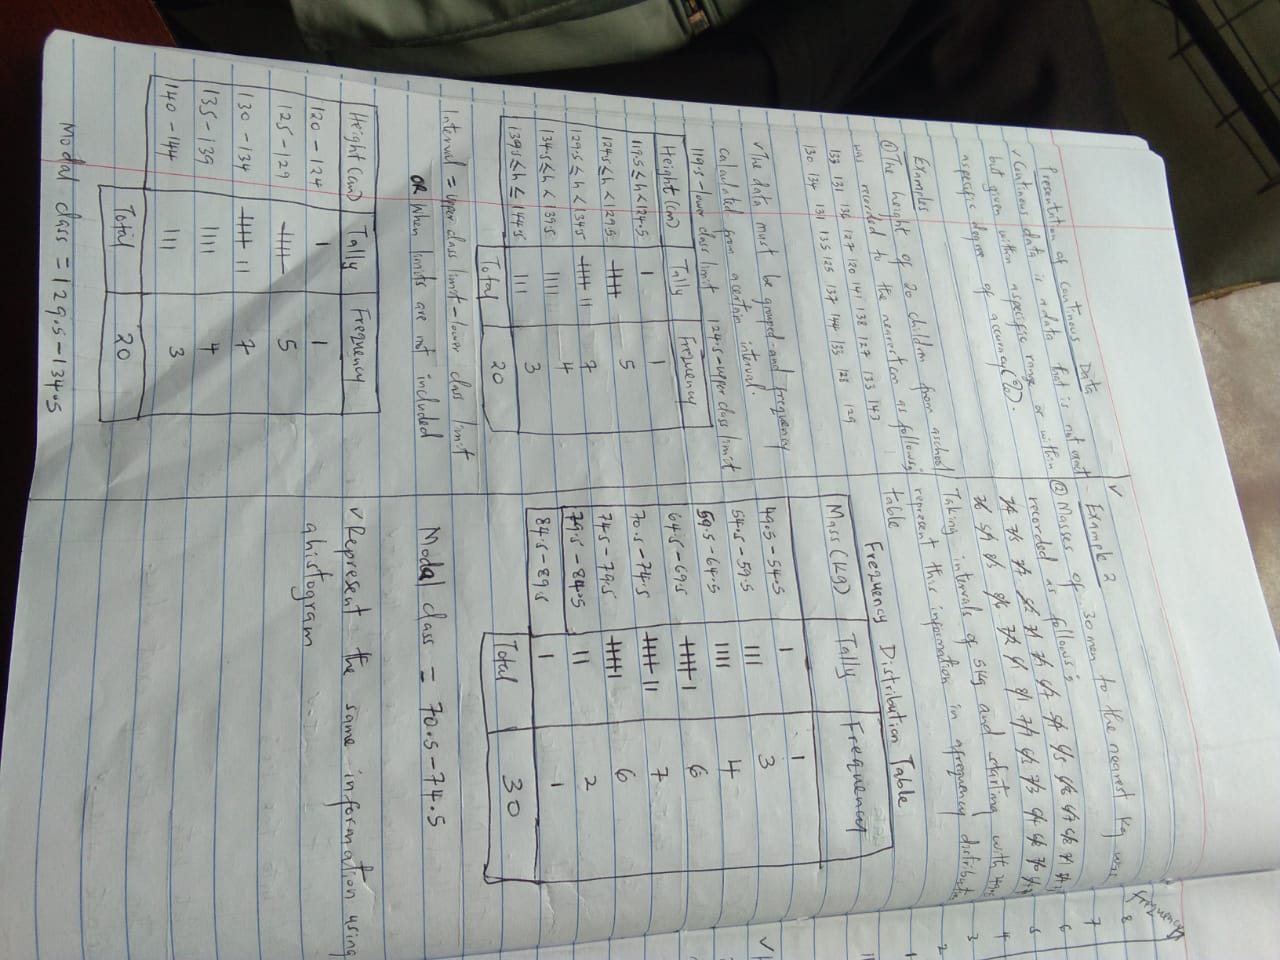 Presentation of continuous Data
✓ Continous data is a data that is not exact
but given within a specific range or within
a specific degree of accuracy (
Examples
① The height of 20 children from a school
was recorded to the nearest cm as follows:
139 131 136 127 120 141 138 127 133 143
130 134 131 135 125 137 144 133 128 129
✓ The data must be grouped and frequency
calculated from a certain interval.
119.5 - lower class limit 124.5 - upper class limit
Height (cm) Tally Frequency
119.5 ≤ h < 124.5 | 1
124.5 ≤ h < 129.5 5
129.5 ≤ h < 134.5 || 7
134.5 ≤ h < 139.5 |||| 4
139.5 ≤ h ≤ 144.5 ||| 3
Total 20
Interval = upper class limit - lower class limit
OR When limits are not included
Height (cm) Tally Frequency
120 - 124 | 1
125 - 129 5
130 - 134 || 7
135 - 139 |||| 4
140 - 144 ||| 3
Total 20
Modal class = 129.5 - 134.5
✓ Example 2
② Masses of 30 men to the nearest kg was
recorded as follows:
Taking intervals of 5kg and starting with
represent this information in a frequency
table
Frequency Distribution Table
Mass (kg) Tally Frequency
49.5 - 54.5 | 1
54.5 - 59.5 ||| 3
59.5 - 64.5 |||| 4
64.5 - 69.5 | 6
70.5 - 74.5 || 7
74.5 - 79.5 | 6
79.5 - 84.5 || 2
84.5 - 89.5 | 1
Total 30
Modal class = 70.5 - 74.5
✓ Represent the same information using
a histogram
Frequency
8
7
6
5
4
3
2
1